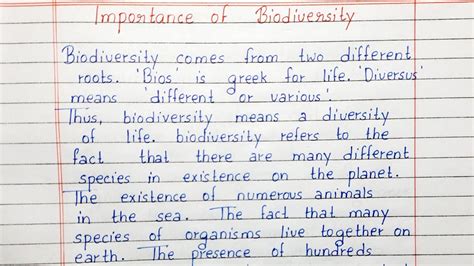 Importance of Biodiversity
Biodiversity comes from two different
roots. 'Bios' is greek for life. 'Diversus'
means 'different or various'.
Thus, biodiversity means a diversity
of life. biodiversity refers to the
fact that there are many different
species in existence on the planet.
The existence of numerous animals
in the sea. The fact that many
species of organisms live together on
earth. The presence of hundreds